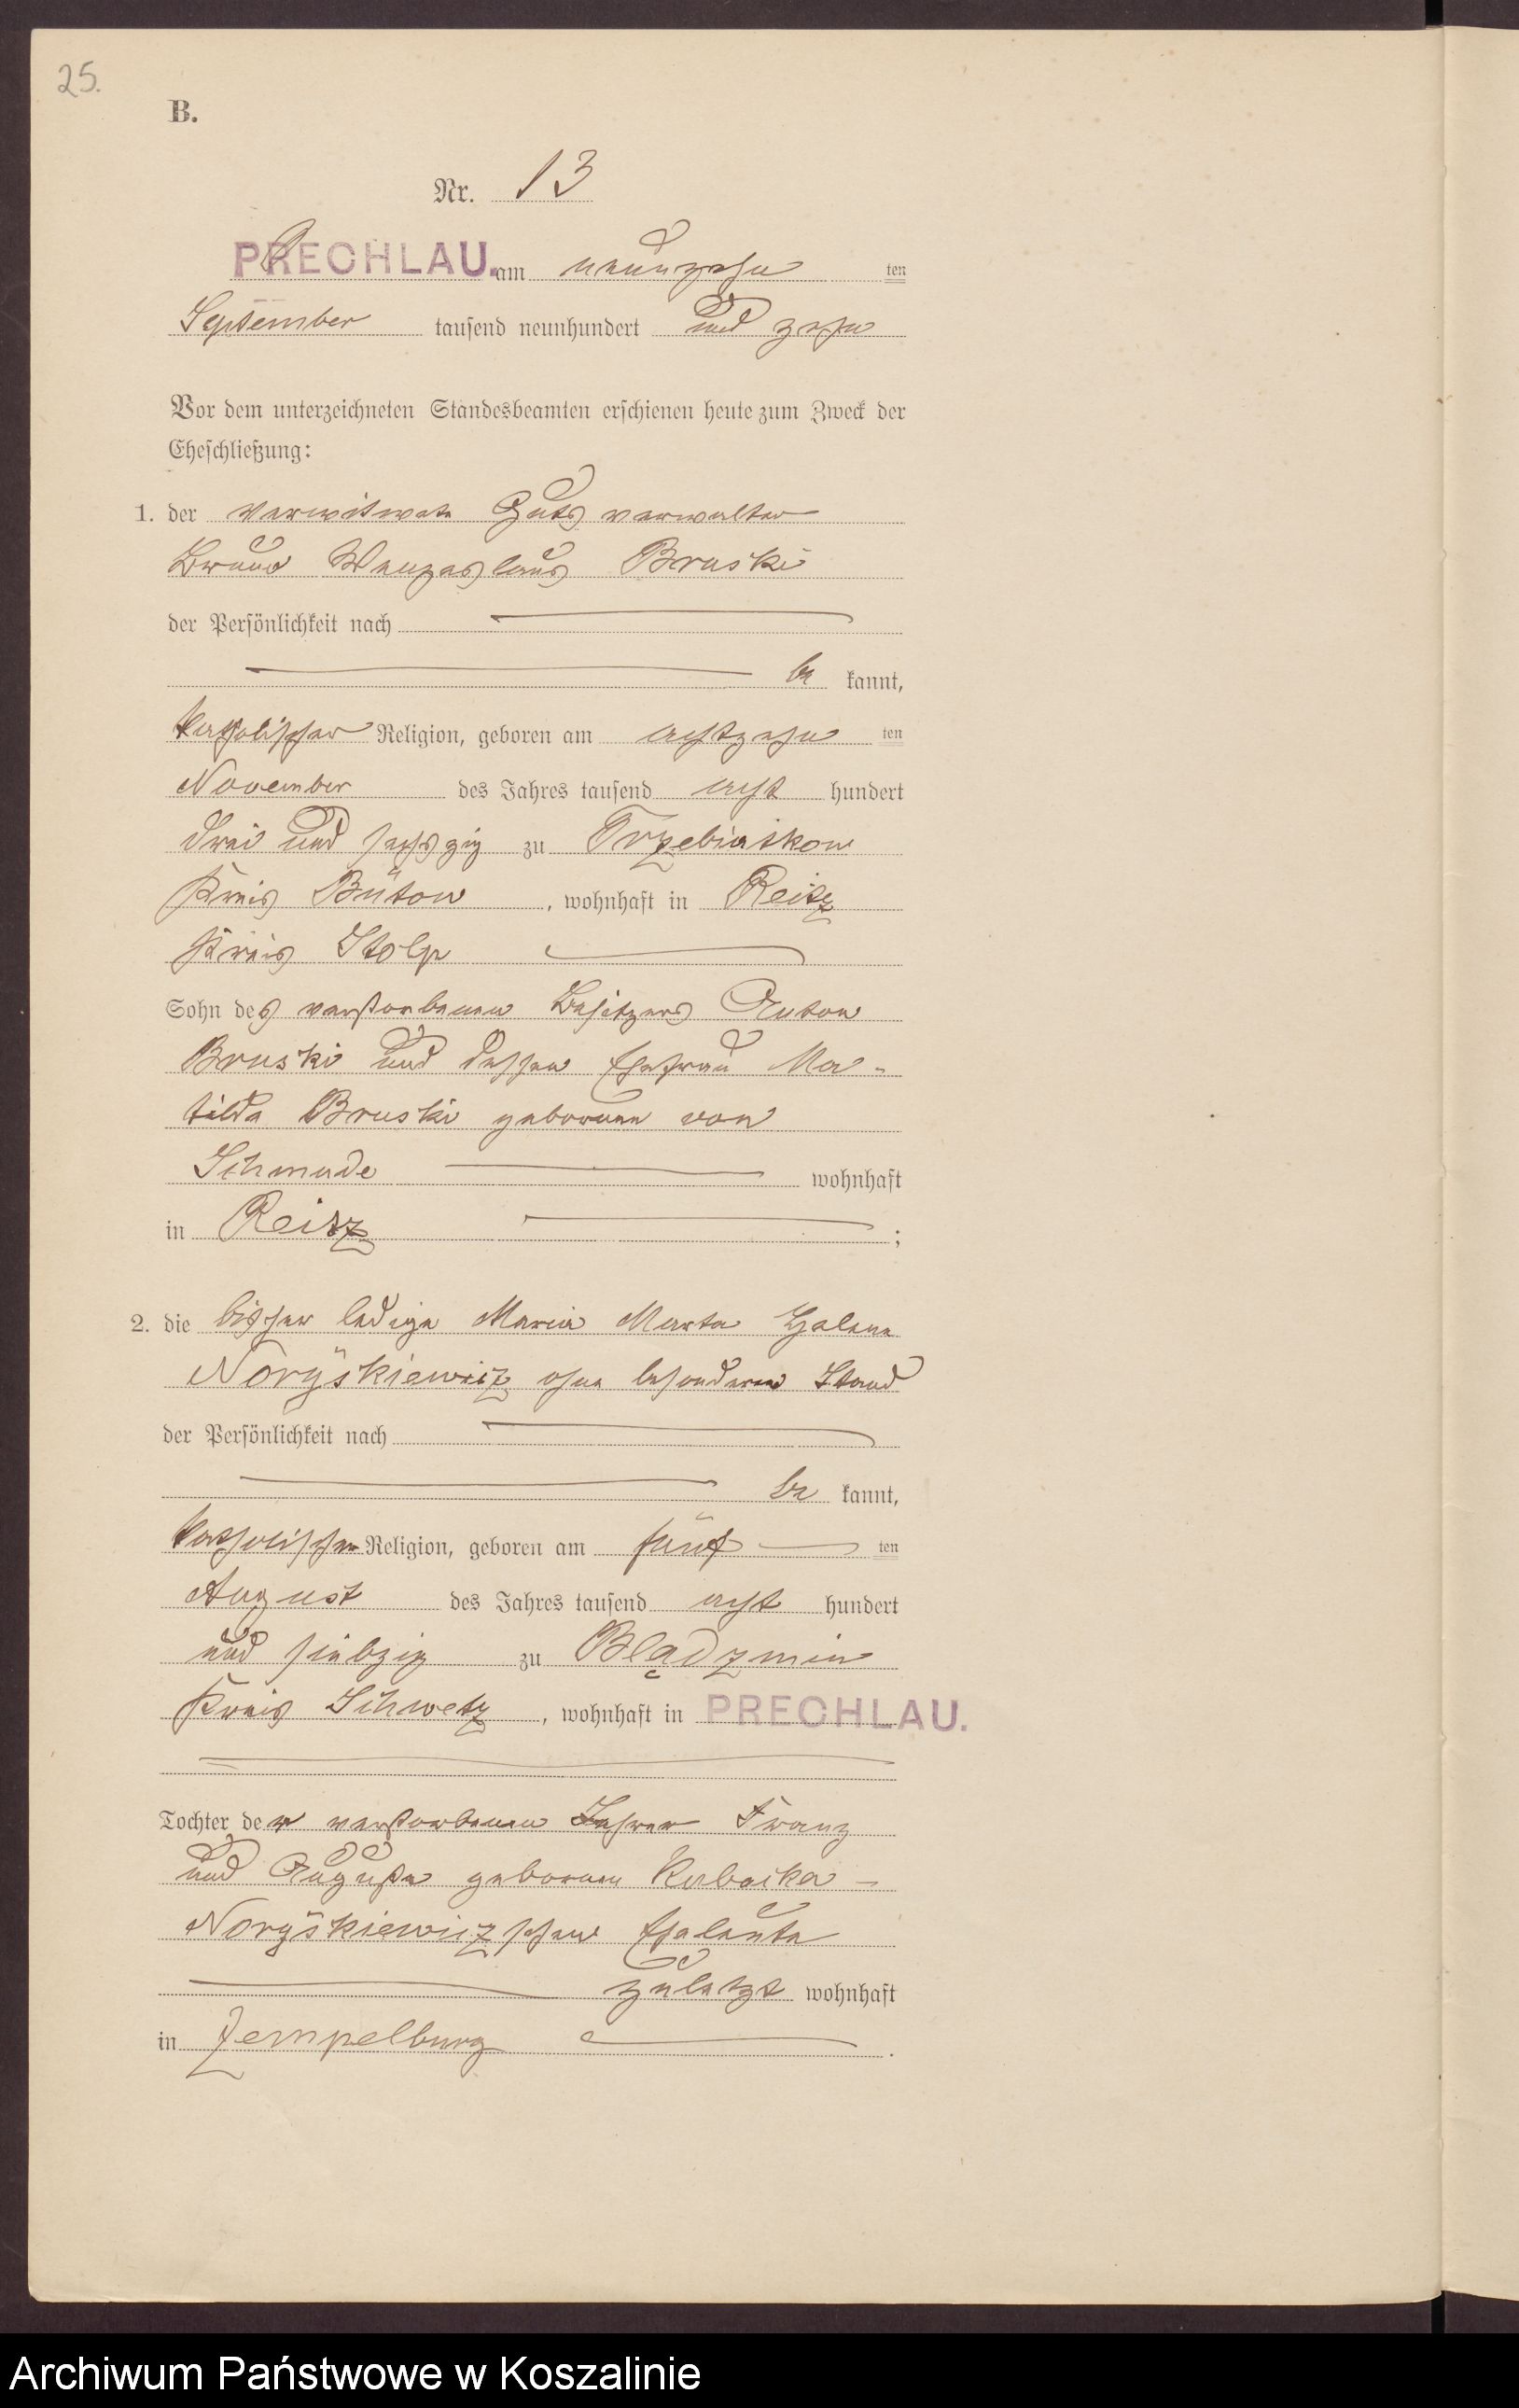 25.
B.
Nr. 13
PRECHLAU. am neunzehn ten
September tausend neunhundert und zehn
Vor dem unterzeichneten Standesbeamten erschienen heute zum Zweck der
Eheschließung:
1. der verwitwete Gutsverwalter
Bruno Wenzeslaus Bruski
der Persönlichkeit nach
be kannt,
katholischer Religion, geboren am achtzehn ten
November des Jahres tausend acht hundert
drei und sechszig zu Trzebiatkow
Kreis Bütow, wohnhaft in Reitz
Kreis Stolp
Sohn des verstorbenen Besitzers Anton
Bruski und dessen Ehefrau Ma-
tilda Bruski geborenen von
Schmude wohnhaft
in Reitz;
2. die bisher ledige Maria Marta Helene
Noryskiewicz ohne besonderen Stand
der Persönlichkeit nach
be kannt,
katholischer Religion, geboren am fünf ten
August des Jahres tausend acht hundert
und siebzig zu Blądzmin
Kreis Schwetz, wohnhaft in PRECHLAU.
Tochter der verstorbenen Lehrer Franz
und Auguste geborenen
Noryskiewicz schen Eheleute
zuletzt wohnhaft
in Zempelburg.
Archiwum Państwowe w Koszalinie